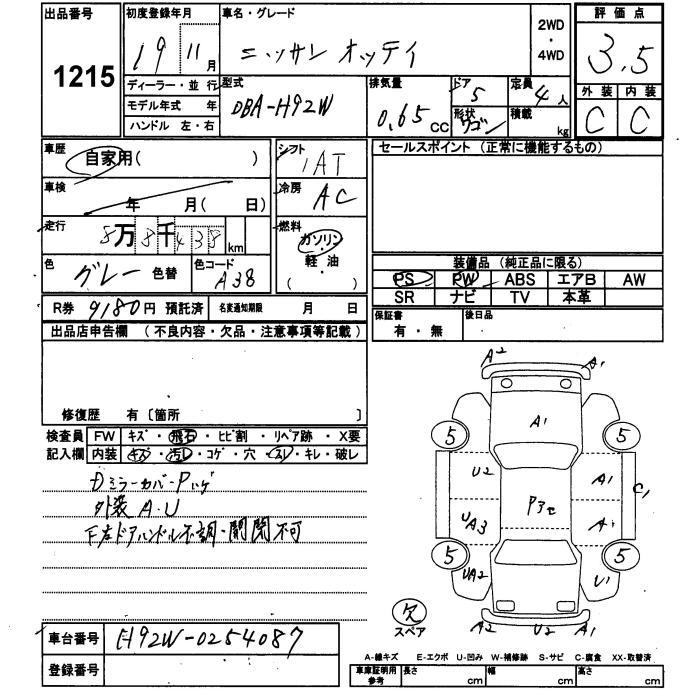 出品番号
1215
初度登録年月
19 11月
ディーラー・並行
モデル年式 年
ハンドル 左・右
車名・グレード
ニッサン オッティ
2WD
・
4WD
評価点
3.5
外装 内装
C C
型式
DBA-H92W
排気量
0.65cc
ドア
5
形状
ワゴン
定員
4人
積載
kg
車歴
自家用( )
車検
年 月( 日)
走行
8万8千438km
色
グレー 色替
色コード
A38
シフト
IAT
冷房
AC
燃料
ガソリン
軽・油
( )
セールスポイント (正常に機能するもの)
装備品 (純正品に限る)
PS PW ABS エアB AW
SR ナビ TV 本革
保証書
有・無
後日品
R券 9180円 預託済
名変通知期限 月 日
出品店申告欄 (不良内容・欠品・注意事項等記載)
修復歴 有〔箇所 〕
検査員
記入欄
FW キズ・飛石・ヒビ割・リペア跡・X要
内装 キズ・汚レ・コゲ・穴・スレ・キレ・破レ
Dミラーカバー・Pハゲ
外装A.U
F左ドアハンドル不調・開閉不可
A2 A1
A1
5 5
U2 A1
C1
UA3 Pアセ A1
5 5
UA2 U1
A2 U2 A1
欠
スペア
A-線キズ E-エクボ U-凹み W-補修跡 S-サビ C-腐食 XX-取替済
車台番号
H92W-0254087
登録番号
車庫証明用
参考
長さ cm
幅 cm
高さ cm